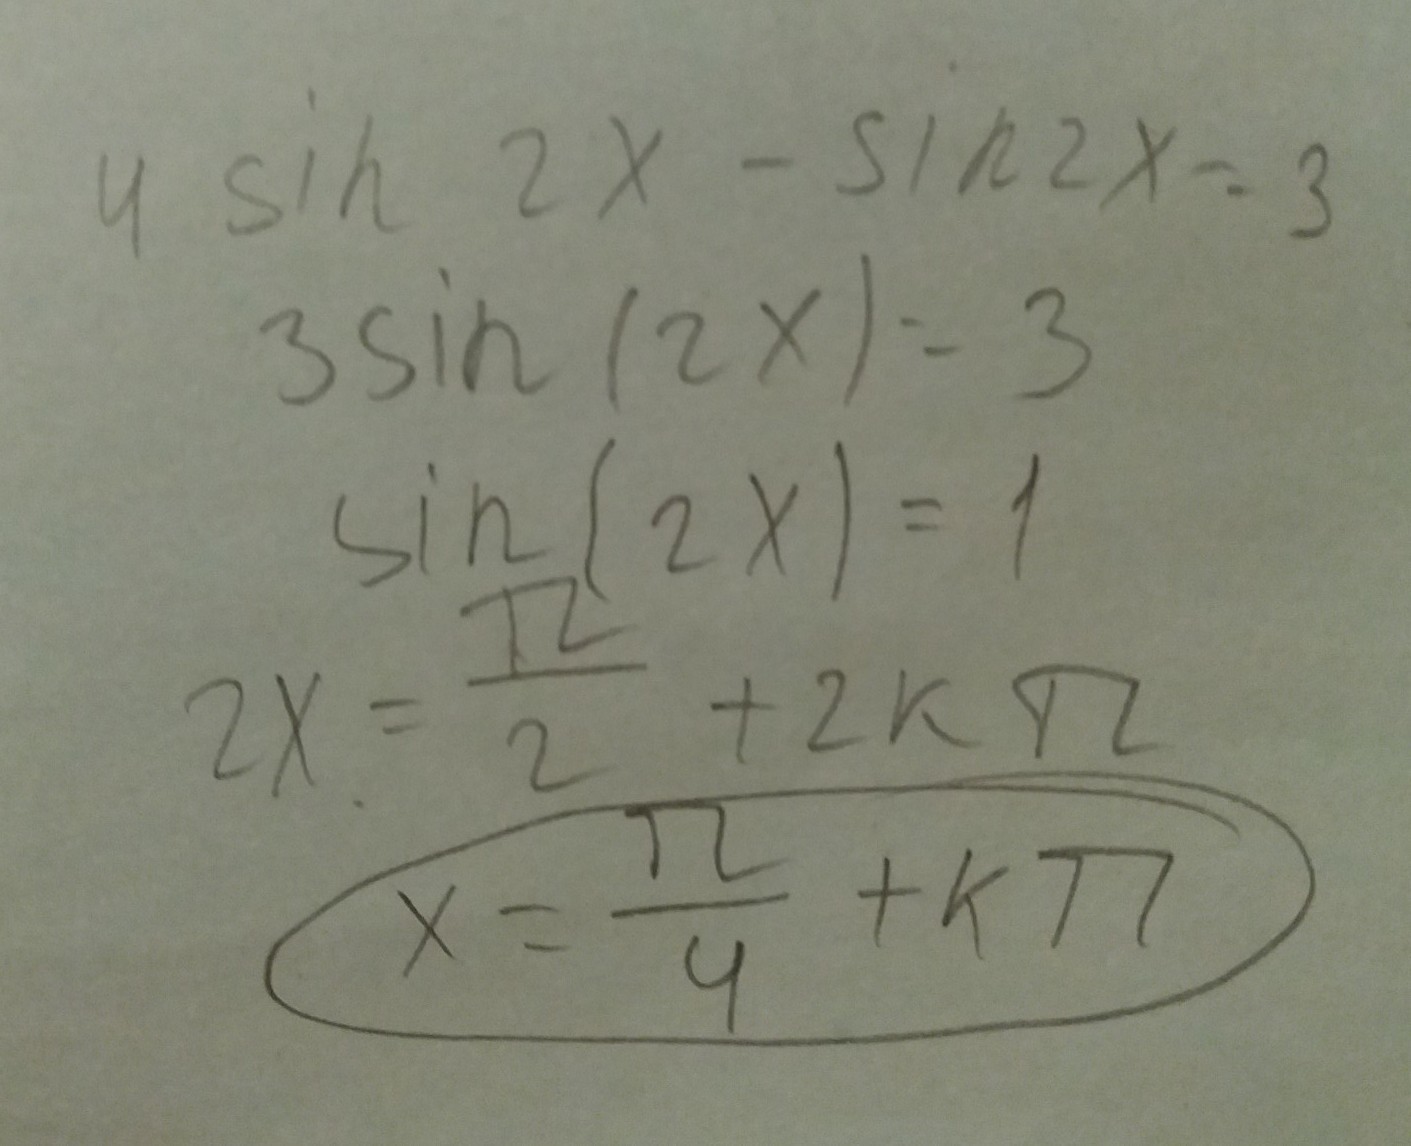 4 sin 2x - sin2x = 3
3sin (2x) = 3
sin (2x) = 1
2x = π/2 + 2kπ
x = π/4 + kπ